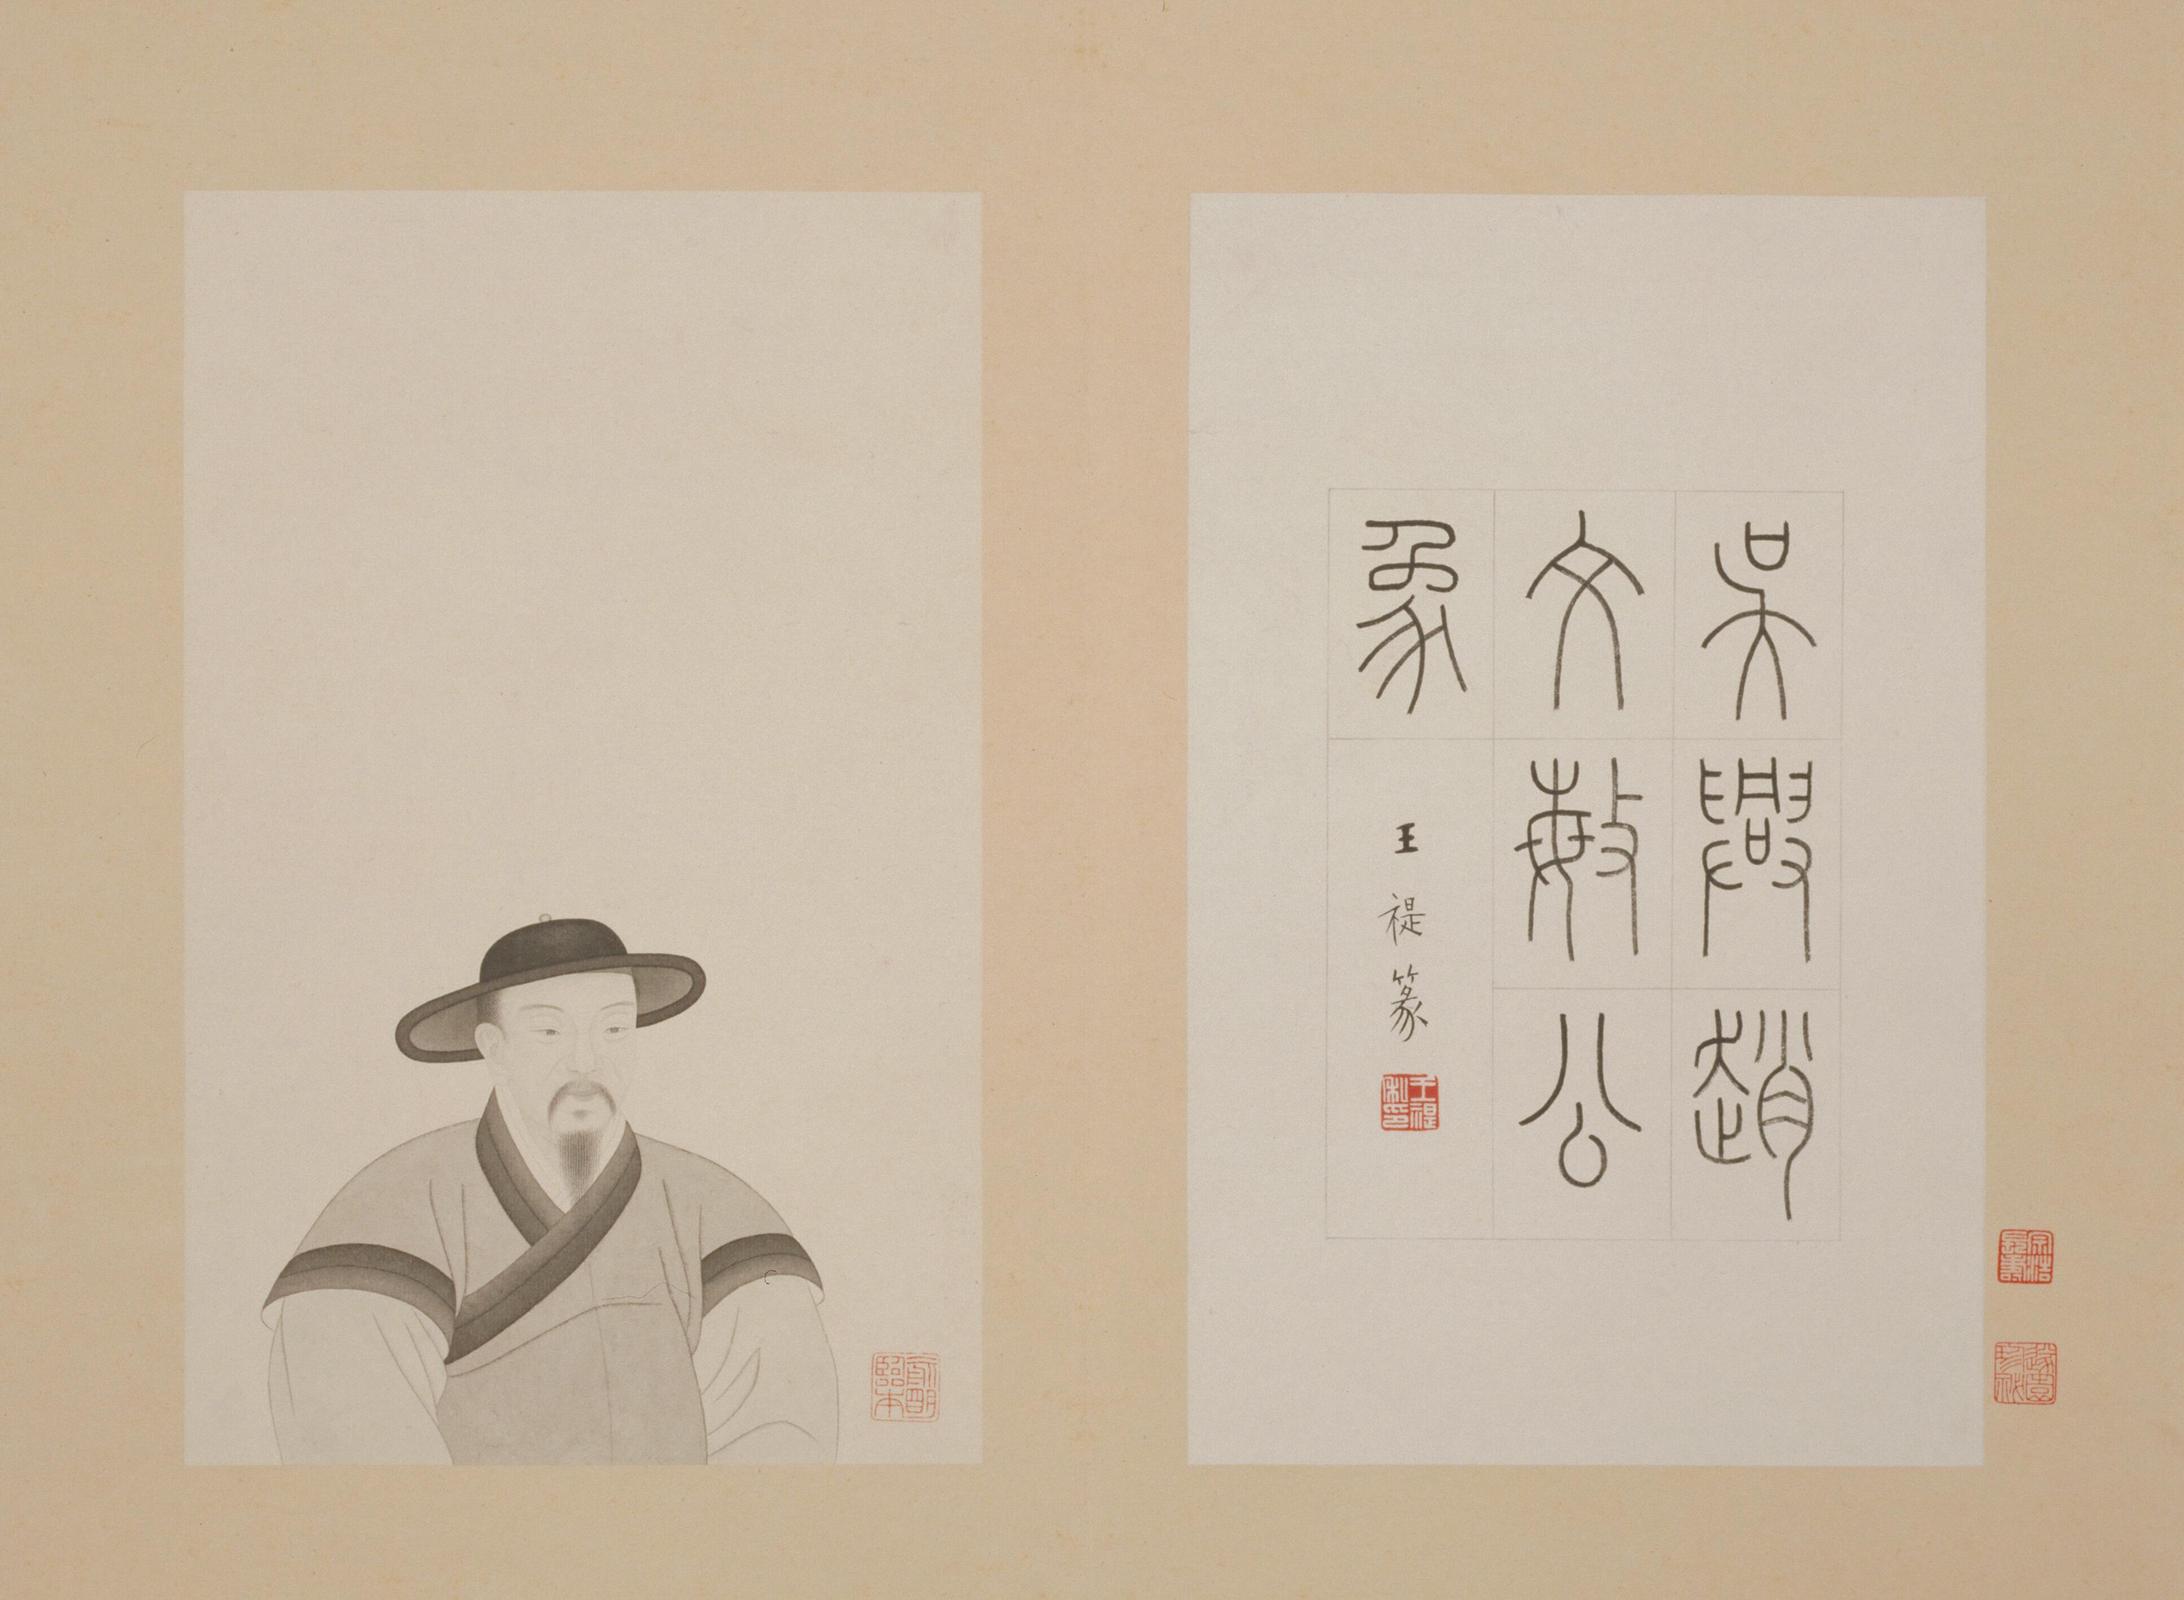 吳興趙
文敏公
象
王禔篆
王禔私印